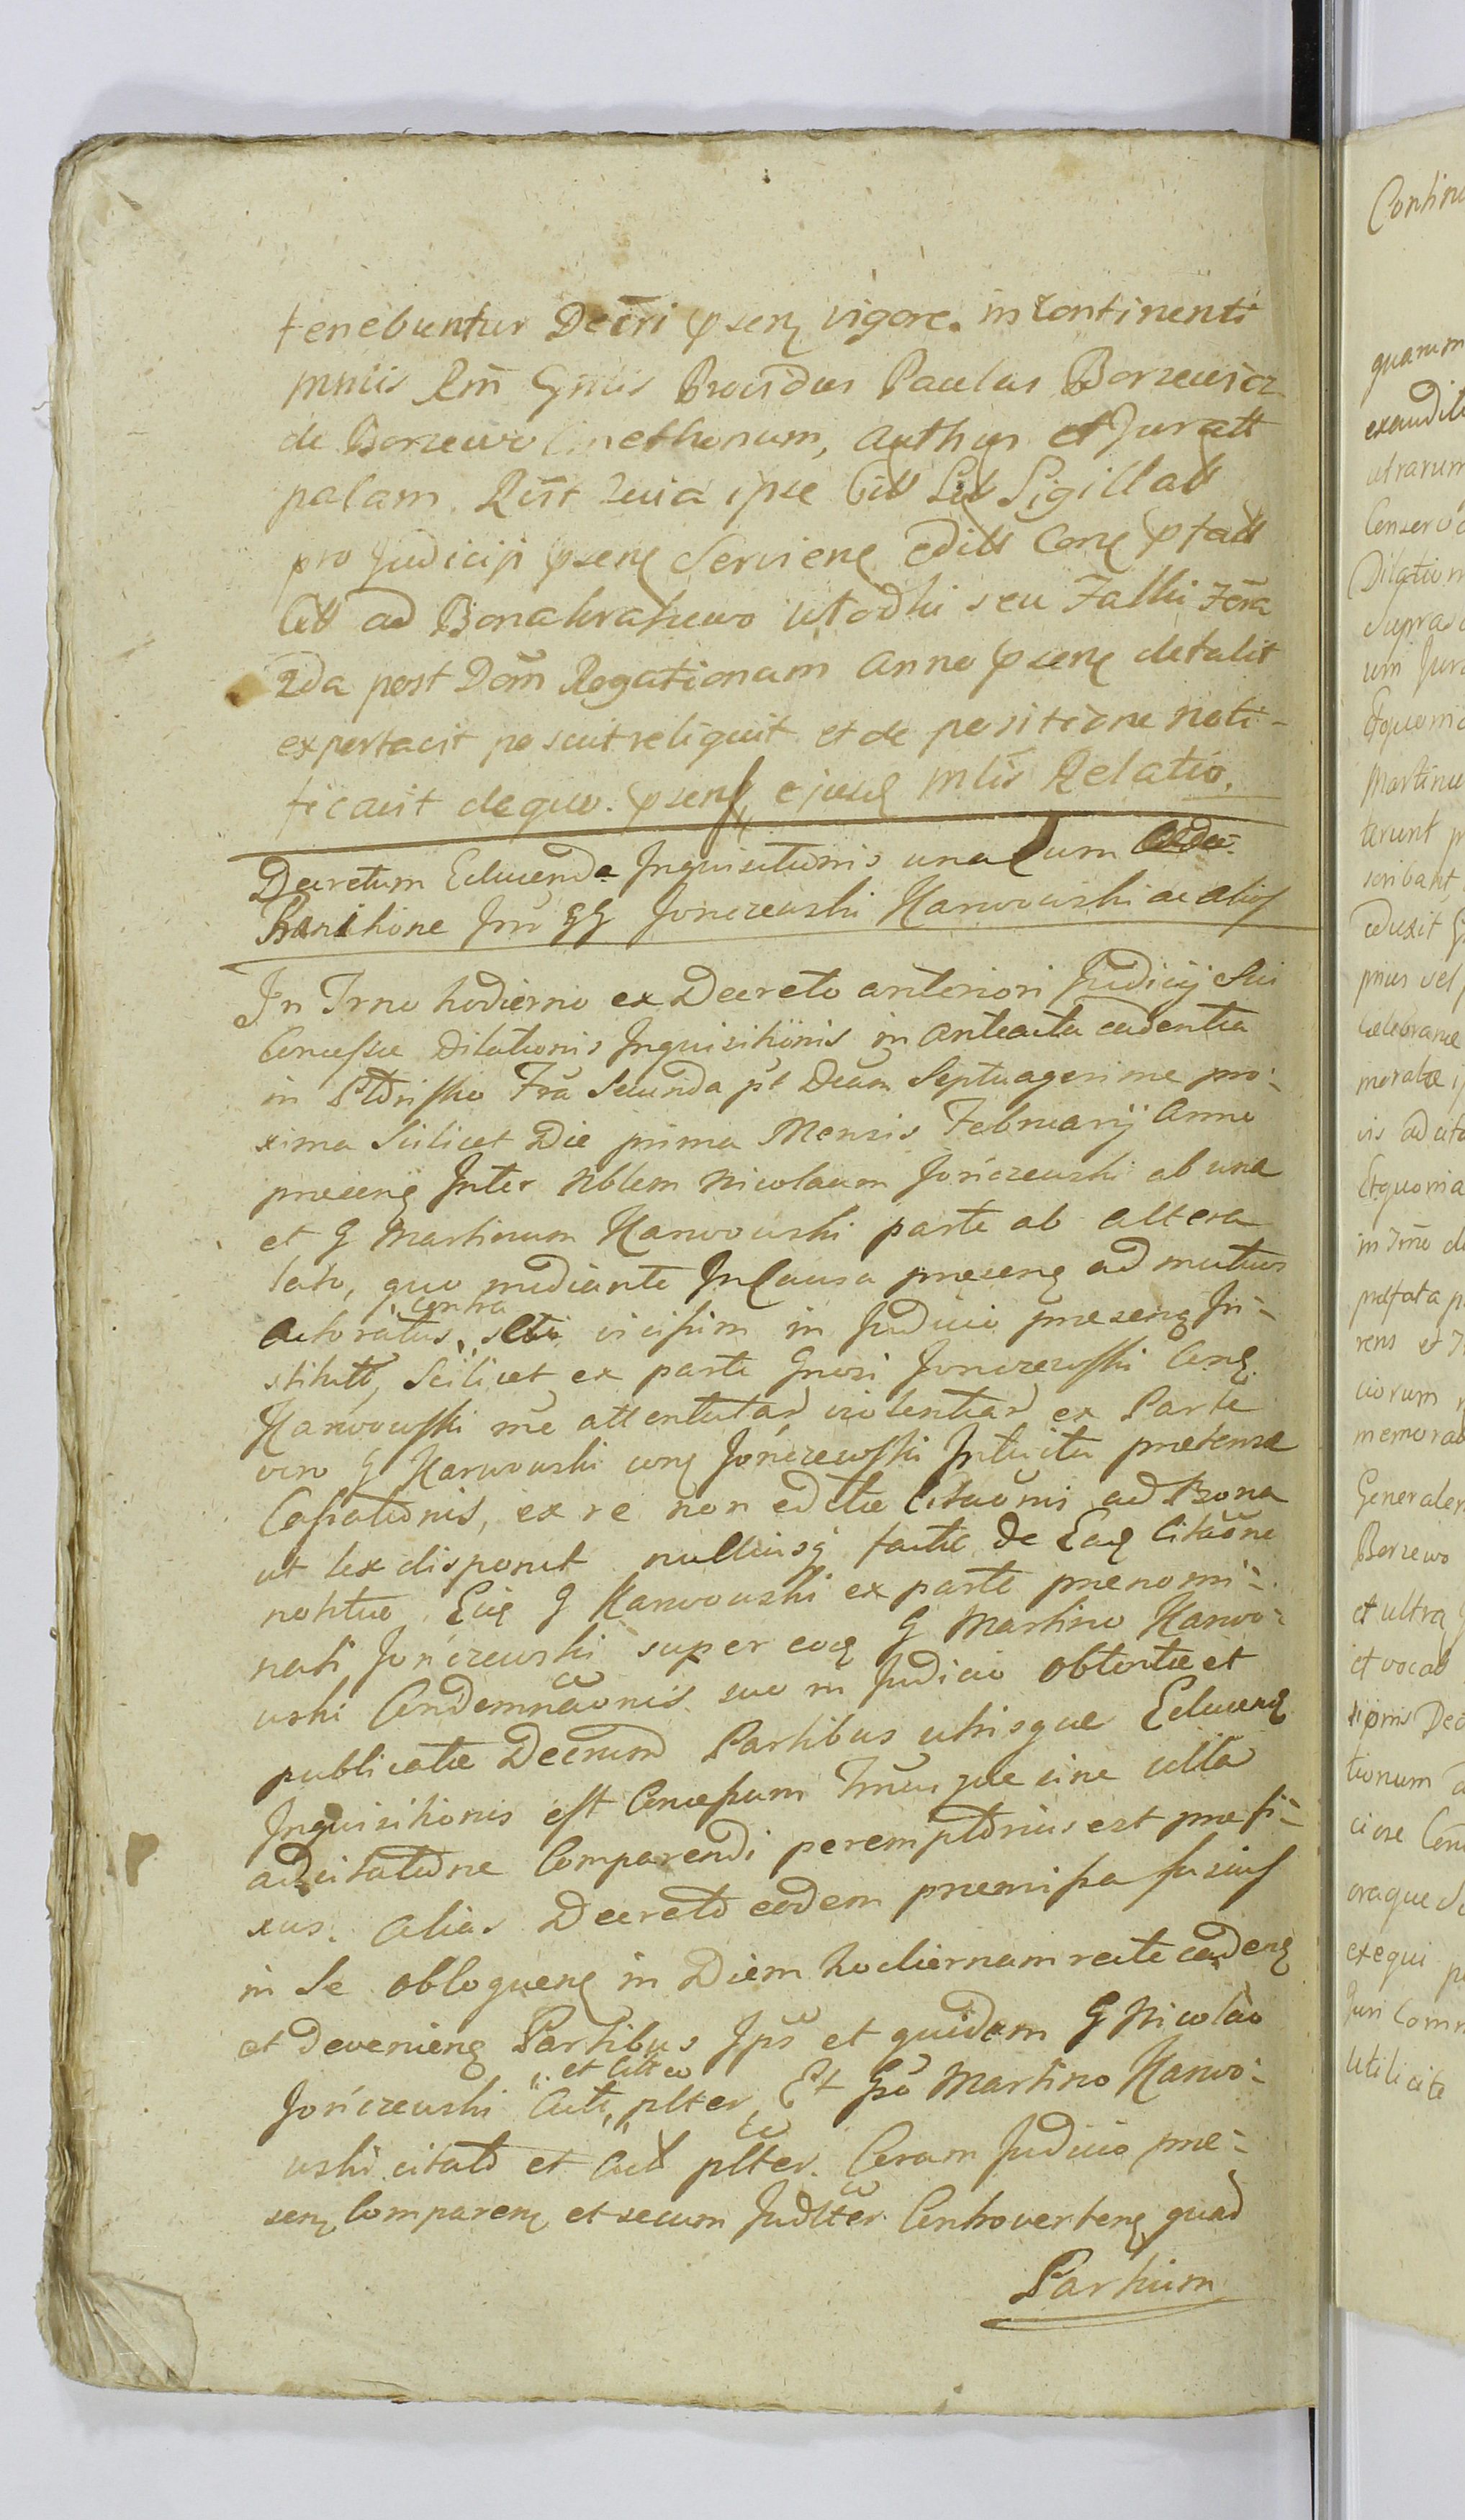 tenebuntur Decri psenς vigore. in continenti
mniis Rm̃ Gn̄lis Providus Paulus Borzewicz
de Borzewo Cmethonum, authen et Juratt
palam. Rc̃st quia ipse Citt Litt Sigillatt
pro Judiciji psenς servienς editt Conς ptatt
Citt ad Bona Wtodki seu Falki Fēria
2da post Dom̃ Rogationam anno psenς detulit
exportavit posuit reliquit et de positione noti-
ficavit dequo. psenς ejusd Mtis Relatio.
Decretum Educendæ Inquisitionis una Cum
Inr̃ GG Jonczewski Karwowski ac alios
In Trno hodierno ex Decreto anteriori Judicij Sui
Concessæ Dilationis Inquisitionis in anteacta cadentia
in Fr̃a Secunda pt Dcam Septuagesimæ pro-
xima Scilicet Die prima Mensis Februarij Anno
præsenς Inter Nblem Nicolaum Jończewski ab una
et G Martinum Karwowski parte ab altera
lato, quo mediante In Causa præsenς ad mutuos
contra
actoratus, vicissim in Judicio præsenς In-
stitutt, Scilicet ex parte Gnosi Jonczewsski Conς
Karwowsski attentatas violentias ex Parte
vero G Karwowski conς Jończewsski Intuitu prætensæ
Cassationis, ex re non editæ Citaōnis ad Bona
ut lex disponit nulliusq factæ de Eadς Citaōne
notitiæ, G Karwowski ex parte prænomi-
nati Jończewski super eoς G Martino Karwo-
wski Condemnāonis suo in Judicio obtentæ et
publicatæ Decrum Partibus utrisque Educenς
Inquisitionis est Concessum Trnusque sine ulla
adcitatione Comparendi peremptorius est præfi-
xus. alias Decreto eodem præmissa fusius
in Se obloquenς in Diem hodiernam recte cadenς
et devenienς Partibus Ips̃ et quidem G Nicolao
et Citto
Jończewski Acte, plter, Et Gso Martino Karwo-
wski citato et Act plter. Coram Judicio præ-
senς Comparenς et secum Judlter Controvertenς quas
Partium
Contin
quarum
exaudit
utrarum
Conserva
Dilation
Supras
um Jura
Etquonia
Martinu
terunt p
scribant,
aduxit G
prius vel
Celebrane
moratæ
vis adcita
Etquonia
in Trno d
præfata p
rens et
ciorum
memorat
Generalem
Borzewo
et ultra
et vocat
sionis Dec
tionum
ciose Con
oraque
exequi p
Juri Comm
utilicite